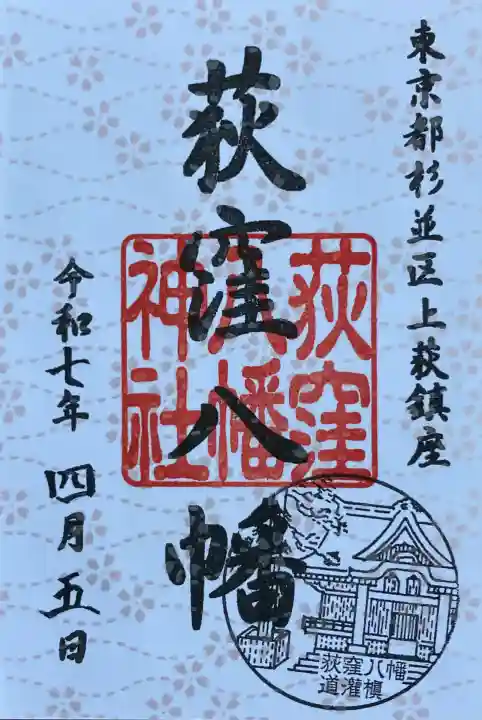 東京都杉並区上荻鎮座
荻窪八幡
荻窪
八幡
神社
令和七年四月五日
荻窪八幡
道灌槇